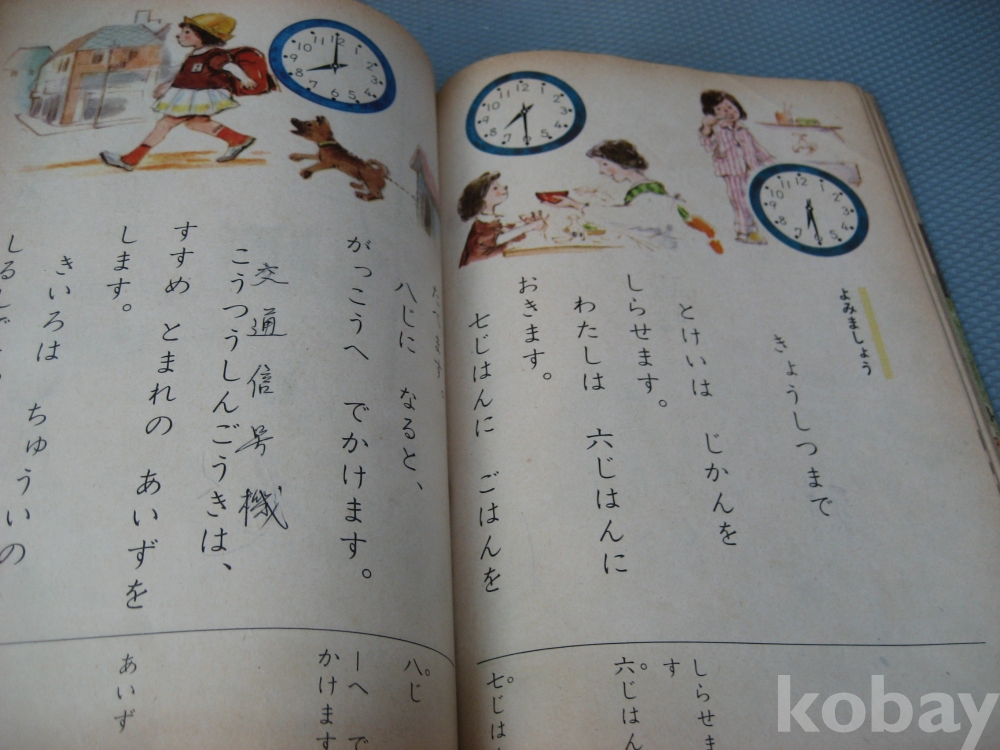 よみましょう
きょうしつまで
とけいは じかんを
しらせます。
わたしは 六じはんに
おきます。
七じはんに ごはんを
八じに なると、
がっこうへ でかけます。
交通信号機
こうつうしんごうきは、
すすめ とまれの あいずを
します。
きいろは ちゅういの
しらせま
す
六じはん
七じは
八じ
ーへ で
かけます
あいず
kobay